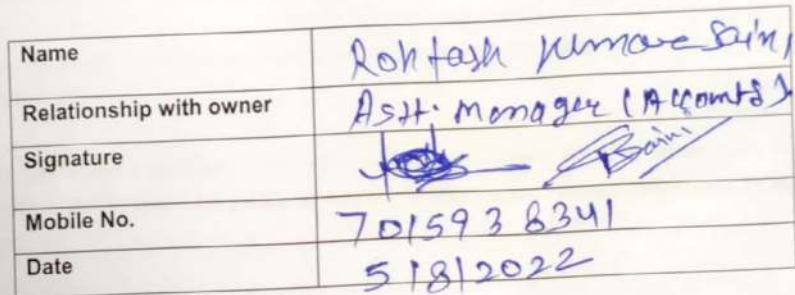 Name Rohtash Kumar Saini
Relationship with owner Astt. Manager (Accounts)
Signature Saini
Mobile No. 7015938341
Date 5/8/2022